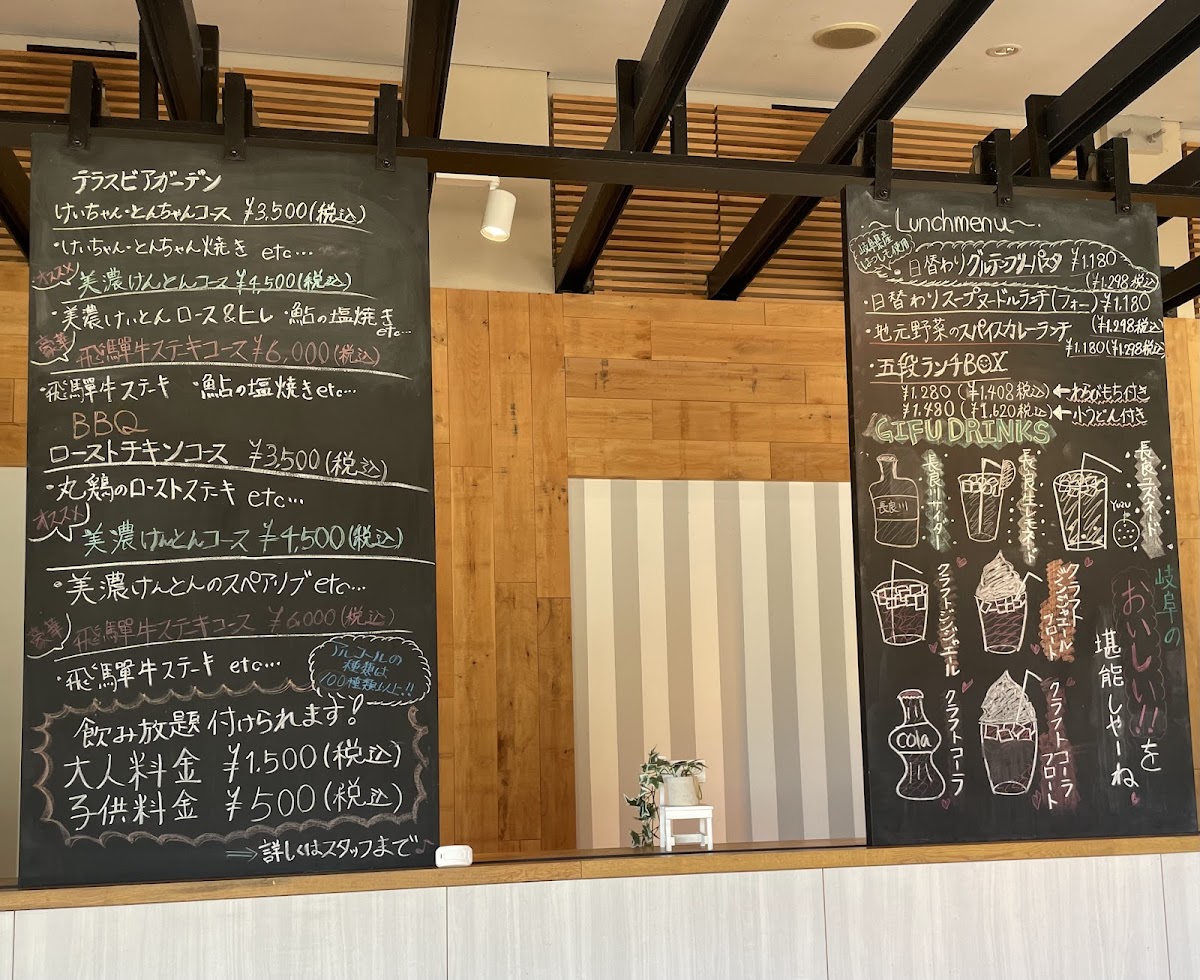 テラスビアガーデン
けいちゃん・とんちゃんコース ¥3,500(税込)
・けいちゃん・とんちゃん焼き etc…
オススメ
美濃けんとんコース ¥4,500(税込)
・美濃けんとん ロース&ヒレ ・鮎の塩焼き etc…
豪華
飛騨牛ステーキコース ¥6,000(税込)
・飛騨牛ステーキ ・鮎の塩焼き etc…
BBQ
ローストチキンコース ¥3,500(税込)
・丸鶏のローストステーキ etc…
オススメ
美濃けんとんコース ¥4,500(税込)
・美濃けんとんのスペアリブ etc…
豪華
飛騨牛ステーキコース ¥6,000(税込)
・飛騨牛ステーキ etc…
アルコールの
種類は
100種類以上!!
飲み放題付けられます!
大人料金 ¥1,500(税込)
子供料金 ¥500(税込)
⇒詳しくはスタッフまで♪
Lunchmenu〜.
岐阜県産
はつしも使用
・日替わりグルテンフリーパスタ ¥1.180
(¥1.298税込)
・日替わりスープヌードルランチ(フォー) ¥1.180
(¥1.298税込)
・地元野菜のスパイスカレーランチ
¥1.180(¥1.298税込)
・五段ランチBOX
¥1.280(¥1.408税込)←わらびもち付き
¥1.480(¥1.620税込)←小うどん付き
GIFU DRINKS
長良川
長良川サイダー
長良生レモネード
YUZU
長良ユズネード
クラフトジンジャエール
クラフト
ジンジャエール
フロート
cola
クラフトコーラ
クラフトコーラ
フロート
岐阜の
おいしい!!を
堪能しやーね